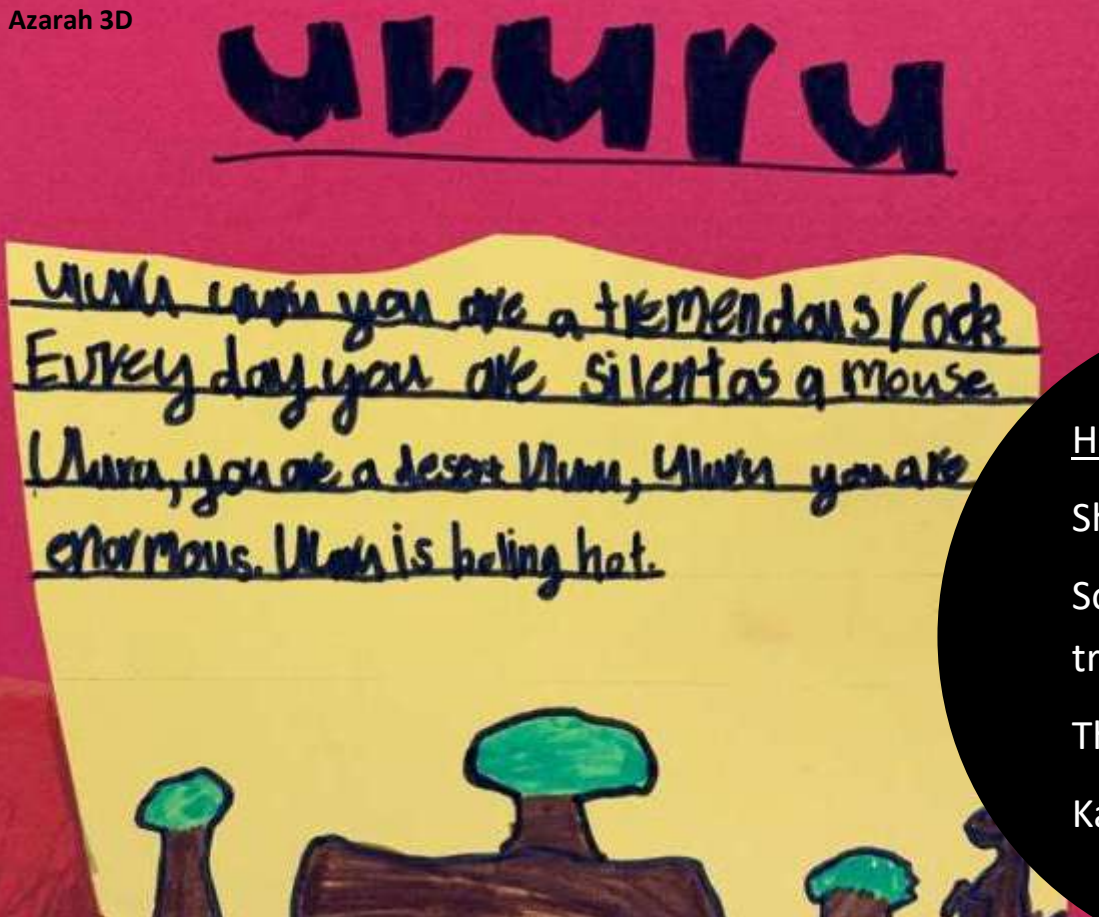 Azarah 3D
uluru
uluru uluru you are a tremendous rock
Evrey day you are silent as a mouse.
Uluru, you are a desert Uluru, Uluru you are
enormous. Uluru is boling hot.
H
Sh
So
tr
Th
Ka